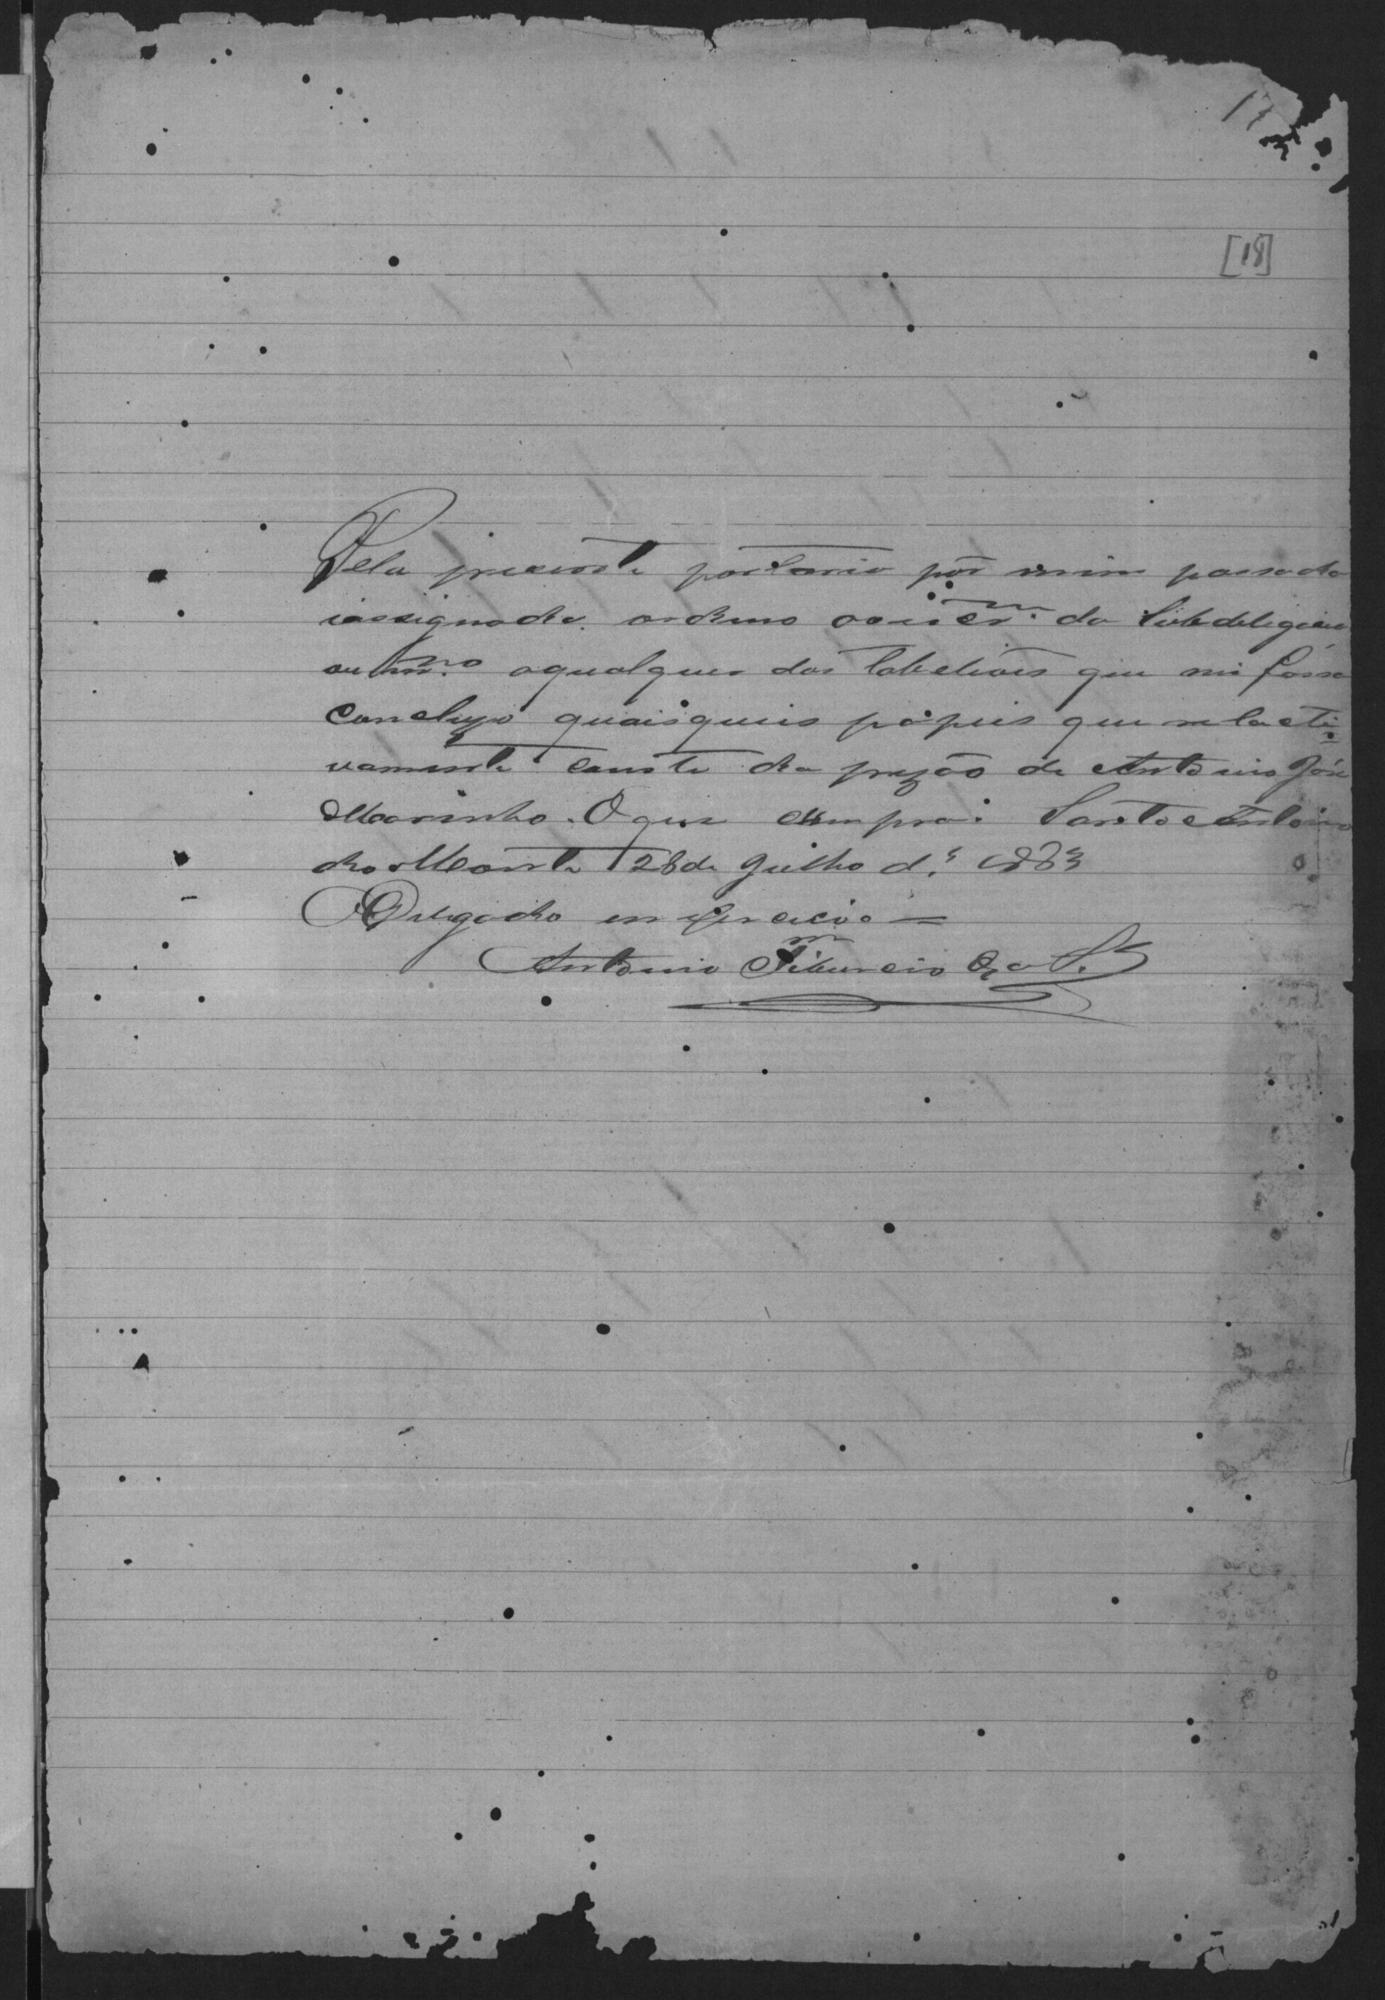 17
[18]
Pela presente portaria por mim passada
iassignada. ordeno ao escr.m da Subdeligacia
ou m.mo aqualquer dos Tabeliães que me fassa
Concluzo quaisqueis papeis que relacti-
vamente conste da prizão de Antonio José
Marinho. O que cumpra. Santo Antonio
do Monte 28 de Julho d. 1883
O Delegado em exercicio
Antonio Tiburcio